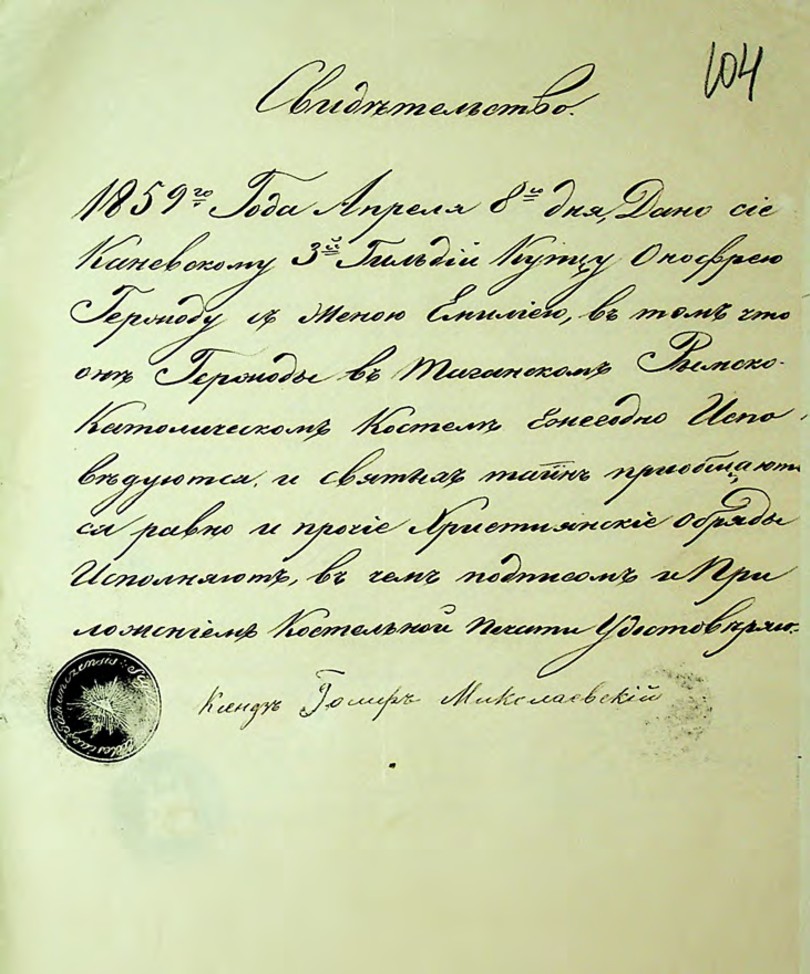 104
Свидѣтельство.
1859го Года Апреля 8й дня, Дано сіе
Каневскому 3й Гильдіи Купцу Онофрею
съ Женою Емиліею, въ томъ что
онъ въ Таганскомъ Рымско-
Католическомъ Костелѣ Ежегодно Испо
вѣдуются, и святыхъ тайнъ приобщают
ся равно и прочіе Християнскіе обряды
Исполняютъ, въ чемъ подписомъ и При
ложеніемъ Костельной Печати Удостовѣряю.
Ксендзъ Миколаевскій